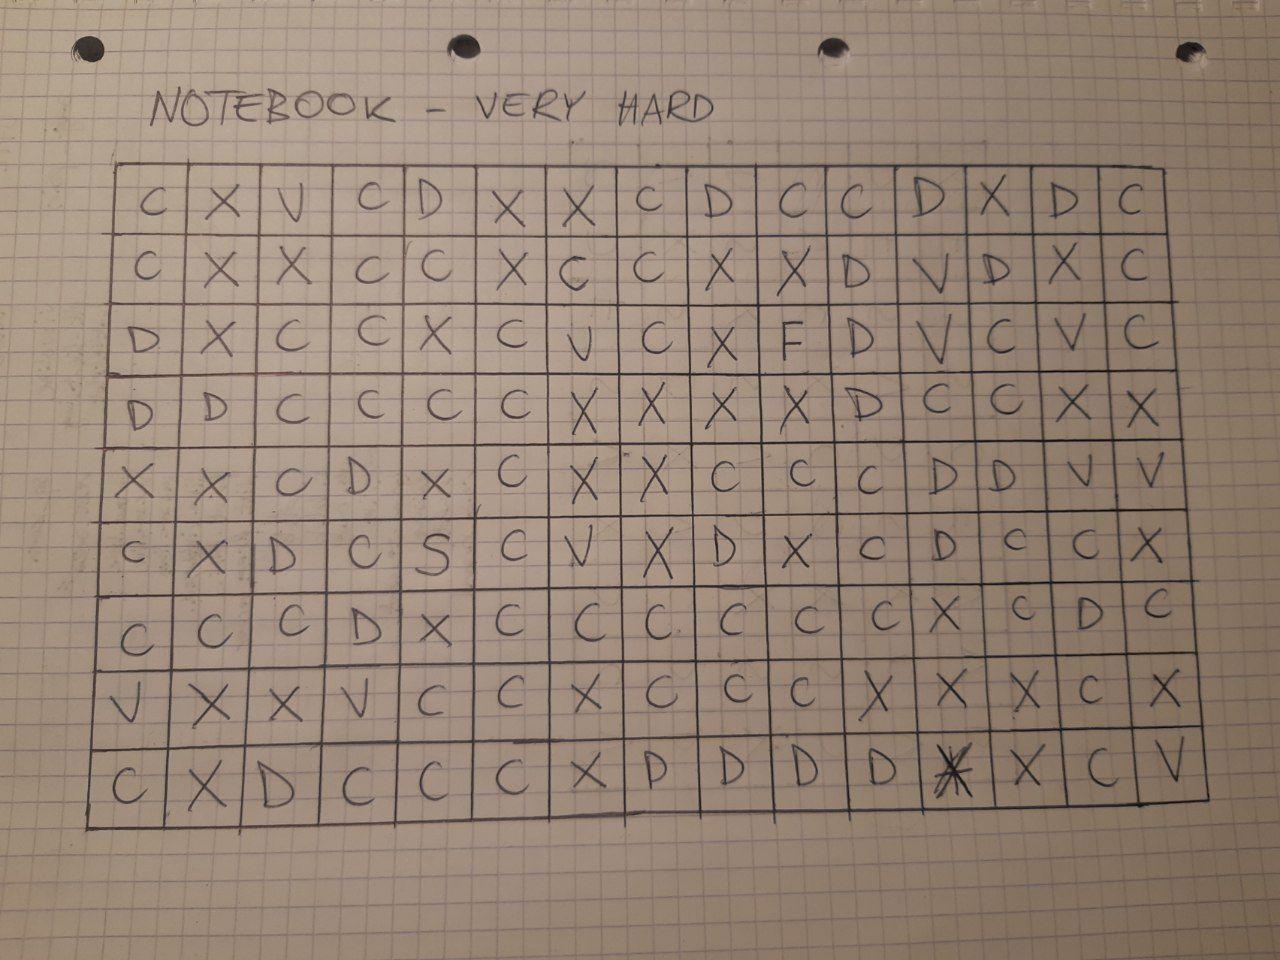 NOTEBOOK - VERY HARD
C X V C D X X C D C C D X D C
C X X C C X C C X X D V D X C
D X C C X C V C X F D V C V C
D D C C C C X X X X D C C X X
X X C D X C X X C C C D D V V
C X D C S C V X D X C D C C X
C C C D X C C C C C C X C D C
V X X V C C X C C C X X X C X
C X D C C C X D D D D X C V